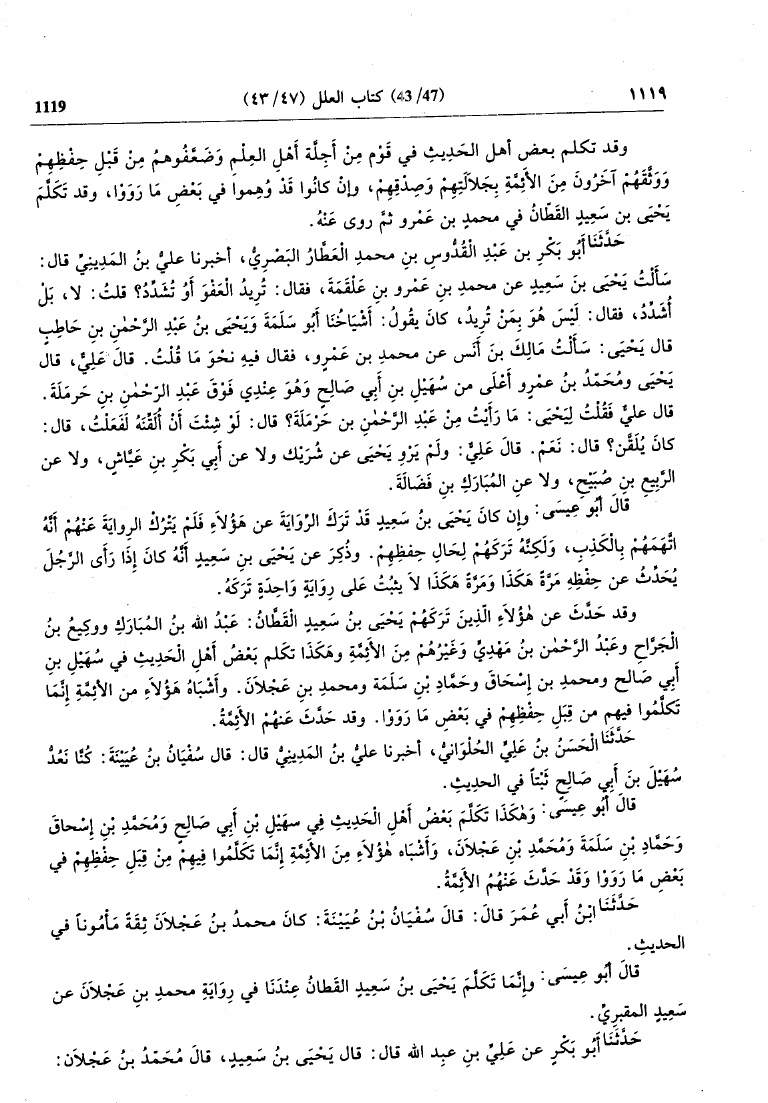 ١١١٩ (43/47) كتاب العلل (٤٧/ ٤٣) 1119
وقد تكلم بعض أهل الحَدِيثِ في قَوْمٍ مِنْ أَجِلَّةِ أَهْلِ العِلْمِ وَضَعَّفُوهمُ مِنْ قَبْلِ حِفْظِهِمْ
وَوَثَّقَهُمْ آخَرُونَ مِنَ الأَئِمَّةِ بِجَلَالَتِهِمْ وَصِدْقِهِمْ، وإنْ كانُوا قَدْ وُهِموا في بَعْضِ مَا رَوَوْا، وقد تَكَلَّمَ
يَحْيَى بن سَعِيدٍ القَطَّانُ في محمدِ بنِ عَمْرو ثمَّ روى عَنْهُ.
حَدَّثَنَا أَبُو بَكْرِ بن عَبْدِ القُدُّوسِ بنِ محمدٍ الْعَطَّارُ البَصْرِيُّ، أخبرنا عليُّ بنُ المَدِينِيِّ قال:
سَأَلْتُ يَحْيَى بنَ سَعِيدٍ عن محمدِ بنِ عَمْرِو بنِ عَلْقَمَةَ، فقال: تُرِيدُ العَفْوَ أَوْ تُشَدِّدُ؟ قلتُ: لا، بَلْ
أُشَدِّدُ، فقال: لَيْسَ هُوَ بِمَنْ تُرِيدُ، كانَ يقُولُ: أَشْيَاخُنَا أَبُو سَلَمَةَ وَيَحْيَى بنُ عَبْدِ الرَّحْمٰنِ بنِ حَاطِبٍ
قال يَحْيَى: سَأَلْتُ مَالِكَ بنَ أَنَسٍ عن محمدِ بن عَمْرٍو، فقال فيهِ نحْوَ مَا قُلْتُ. قالَ عَلِيٌّ، قال
يَحْيَى ومُحَمَّدُ بنُ عمرٍو أَعْلَى من سُهَيْلِ بنِ أَبي صَالِحٍ وَهُوَ عِنْدِي فَوْقَ عَبْدِ الرّحْمٰنِ بنِ حَرمَلَةَ.
قال عليٌّ فَقُلْتُ لِيَحْيَى: مَا رَأَيْتُ مِنْ عَبْدِ الرَّحْمٰنِ بن حَرْمَلَةَ؟ قال: لَوْ شِئتَ أَنْ أُلَقِّنَهُ لَفَعَلْتُ، قال:
كانَ يُلَقَّن؟ قال: نَعَمْ. قالَ عَلِيٌّ: ولَمْ يَرْوِ يَحْيَى عن شَرِيْك ولا عن أَبي بَكْرِ بنِ عَيَّاشٍ، ولا عن
الرَّبِيعِ بنِ صُبَيْحٍ، ولا عنِ المُبَارَكِ بنِ فَضَالَةَ.
قَالَ أَبُو عِيسَى: وإن كانَ يَحْيَى بنُ سَعِيدٍ قَدْ تَرَكَ الرِّوَايَةَ عن هٰؤُلَاءِ فَلَمْ يَتْرُكْ الروايةَ عَنْهُمْ أَنَّهُ
اتَّهَمَهُمْ بِالْكَذِبِ، وَلَكِنَّهُ تَرَكَهُمْ لِحَالِ حِفظِهِمْ. وذُكِرَ عن يَحْيَى بنِ سَعِيدٍ أَنَّهُ كانَ إذَا رَأَى الرَّجُلَ
يُحَدِّثُ عن حِفْظِهِ مَرَّةً هَكَذَا وَمَرَّةً هَكَذَا لاَ يثبُتُ على رِوَايَةٍ وَاحِدَةٍ تَرَكَهُ.
وقد حَدَّثَ عن هٰؤُلاَءِ الَّذِينَ تَرَكَهُمْ يَحْيَى بنُ سَعِيدٍ الْقَطَّانُ: عَبْدُ الله بنُ المُبَارَكِ ووكِيعُ بنُ
الْجَرَّاحِ وعَبْدُ الرَّحْمٰنِ بنُ مَهْدِيٍّ وَغَيْرُهُمْ مِنَ الأَئِمَّةِ وهَكَذَا تكلم بَعْضُ أهْلِ الْحَدِيثِ في سُهَيْلِ بنِ
أَبي صَالحٍ ومحمدِ بنِ إسْحَاقَ وحَمَّادِ بْنِ سَلَمَةَ ومحمدِ بنِ عَجْلاَنَ. وأَشْبَاهُ هَؤُلاَءِ من الأئمَّةِ إنَّمَا
تَكلَّمُوا فيهم من قِبَلِ حِفْظِهِمْ في بَعْضِ مَا رَوَوْا. وقد حَدَّثَ عَنهُمْ الأَئِمَّةُ.
حَدَّثَنَا الْحَسَنُ بنُ عَلِيٍّ الحُلْوَانيُّ، أخبرنا عليُّ بنُ المَدِينيُّ قال: قال سُفْيَانُ بنُ عُيَيْنَةَ: كُنَّا نَعُدُّ
سُهَيْلَ بنَ أَبي صَالحٍ ثَبْتاً في الحديثِ.
قالَ أَبُو عِيسَى: وَهٰكَذَا تَكَلَّمَ بَعْضُ أَهْلِ الْحَدِيثِ فِي سهَيْلِ بْنِ أَبِي صَالِحٍ وَمُحَمَّدِ بْنِ إِسْحاقَ
وَحَمَّادِ بْنِ سَلَمَةَ وَمُحَمَّدِ بْنِ عَجْلاَنَ، وَأَشْبَاه هٰؤُلاَءِ مِنَ الأَئِمَّةِ إنَّمَا تَكَلَّمُوا فِيهِمْ مِنْ قِبَلِ حِفْظِهِمْ في
بَعْضِ مَا رَوَوْا وَقَدْ حَدَّثَ عَنْهُمُ الأئِمَّةُ.
حَدَّثَنَا ابْنُ أَبي عُمَرَ قالَ: قالَ سُفْيَانُ بْنُ عُيَيْنَةَ: كانَ محمدُ بنُ عَجْلاَنَ ثِقَةً مَأمُوناً في
الحديثِ.
قالَ أَبُو عِيسَى: وإنَّمَا تَكَلَّمَ يَحْيَى بنُ سَعِيدٍ القَطانُ عِنْدَنَا في رِوَايَةِ محمدِ بنِ عَجْلاَنَ عن
سَعِيدٍ المقبرِيِّ.
حَدَّثَنَا أَبُو بَكْرٍ عن عَلِيِّ بنِ عبدِ الله قال: قال يَحْيَى بنُ سَعِيدٍ، قالَ مُحَمّدُ بنُ عَجْلاَنَ: